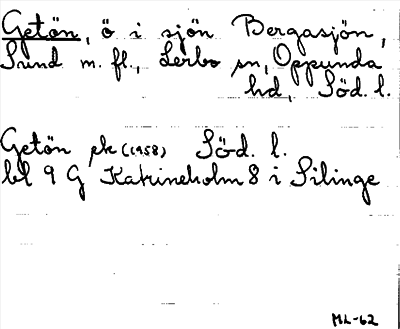 Getön, ö i sjön Bergasjön,
Sund m. fl., Lerbo sn, Oppunda
hd, Söd. l.
Getön pk (1958) Söd. l.
bl 9 G Katrineholm 8 i Silinge
ML-62